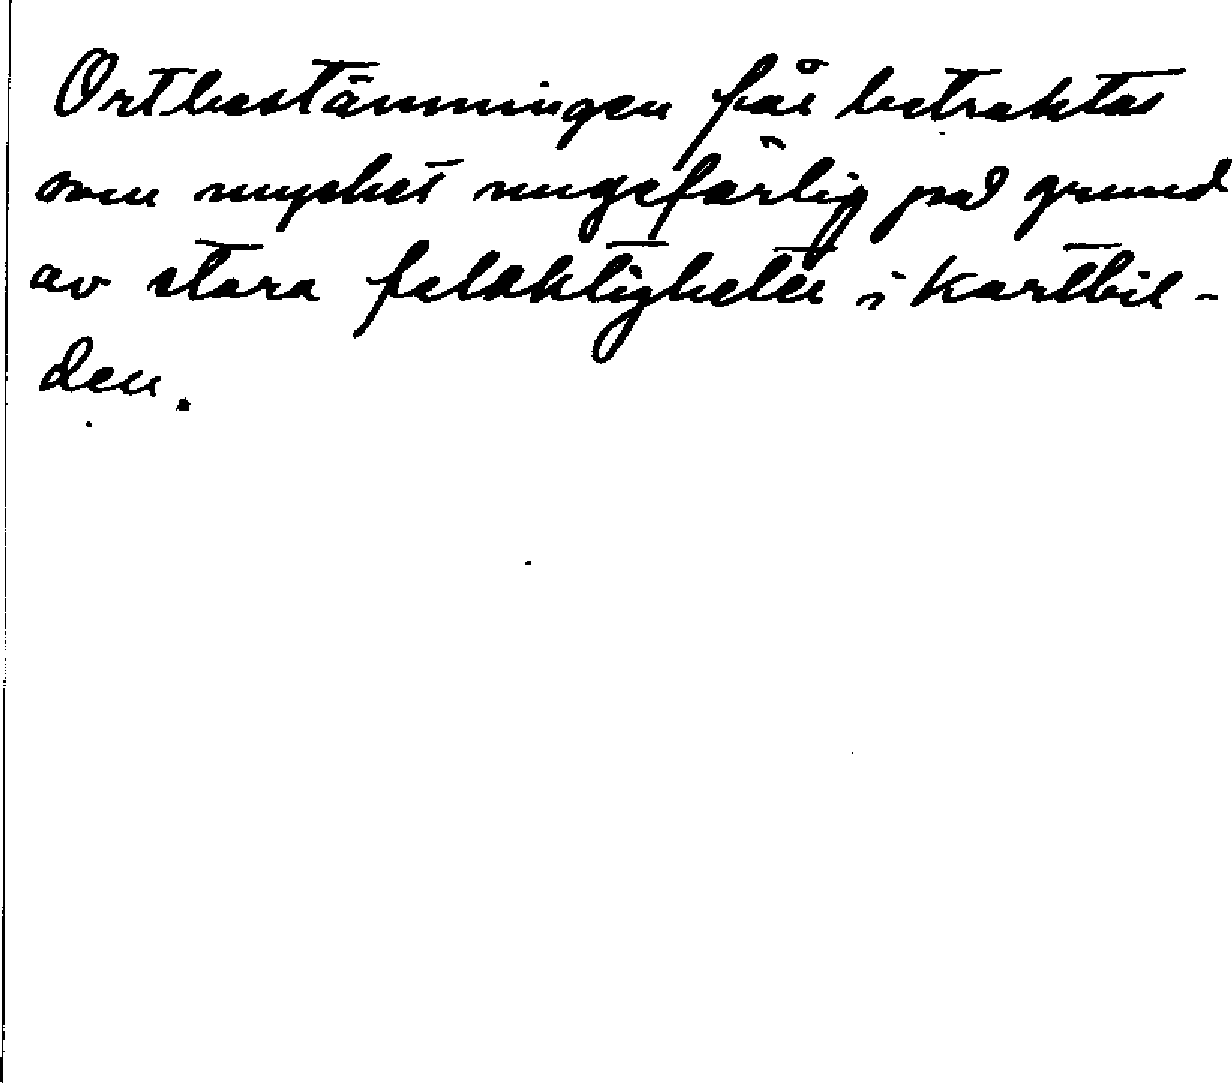 Ortbestämningen får betraktas
som mycket ungefärlig på grund
av stora felaktigheter i kartbil-
den.